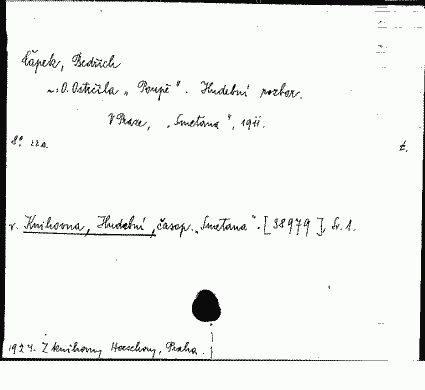 Čápek, Bedřich
: O. Ostrčila „Poupě“. Hudební rozbor.
V Praze, „Smetana“, 1911.
8° 22 s. t.
v. Knihovna, Hudební, časop. „Smetana“. [38979], Sv. 1.
1924. Z knihovny Horschovy, Praha.